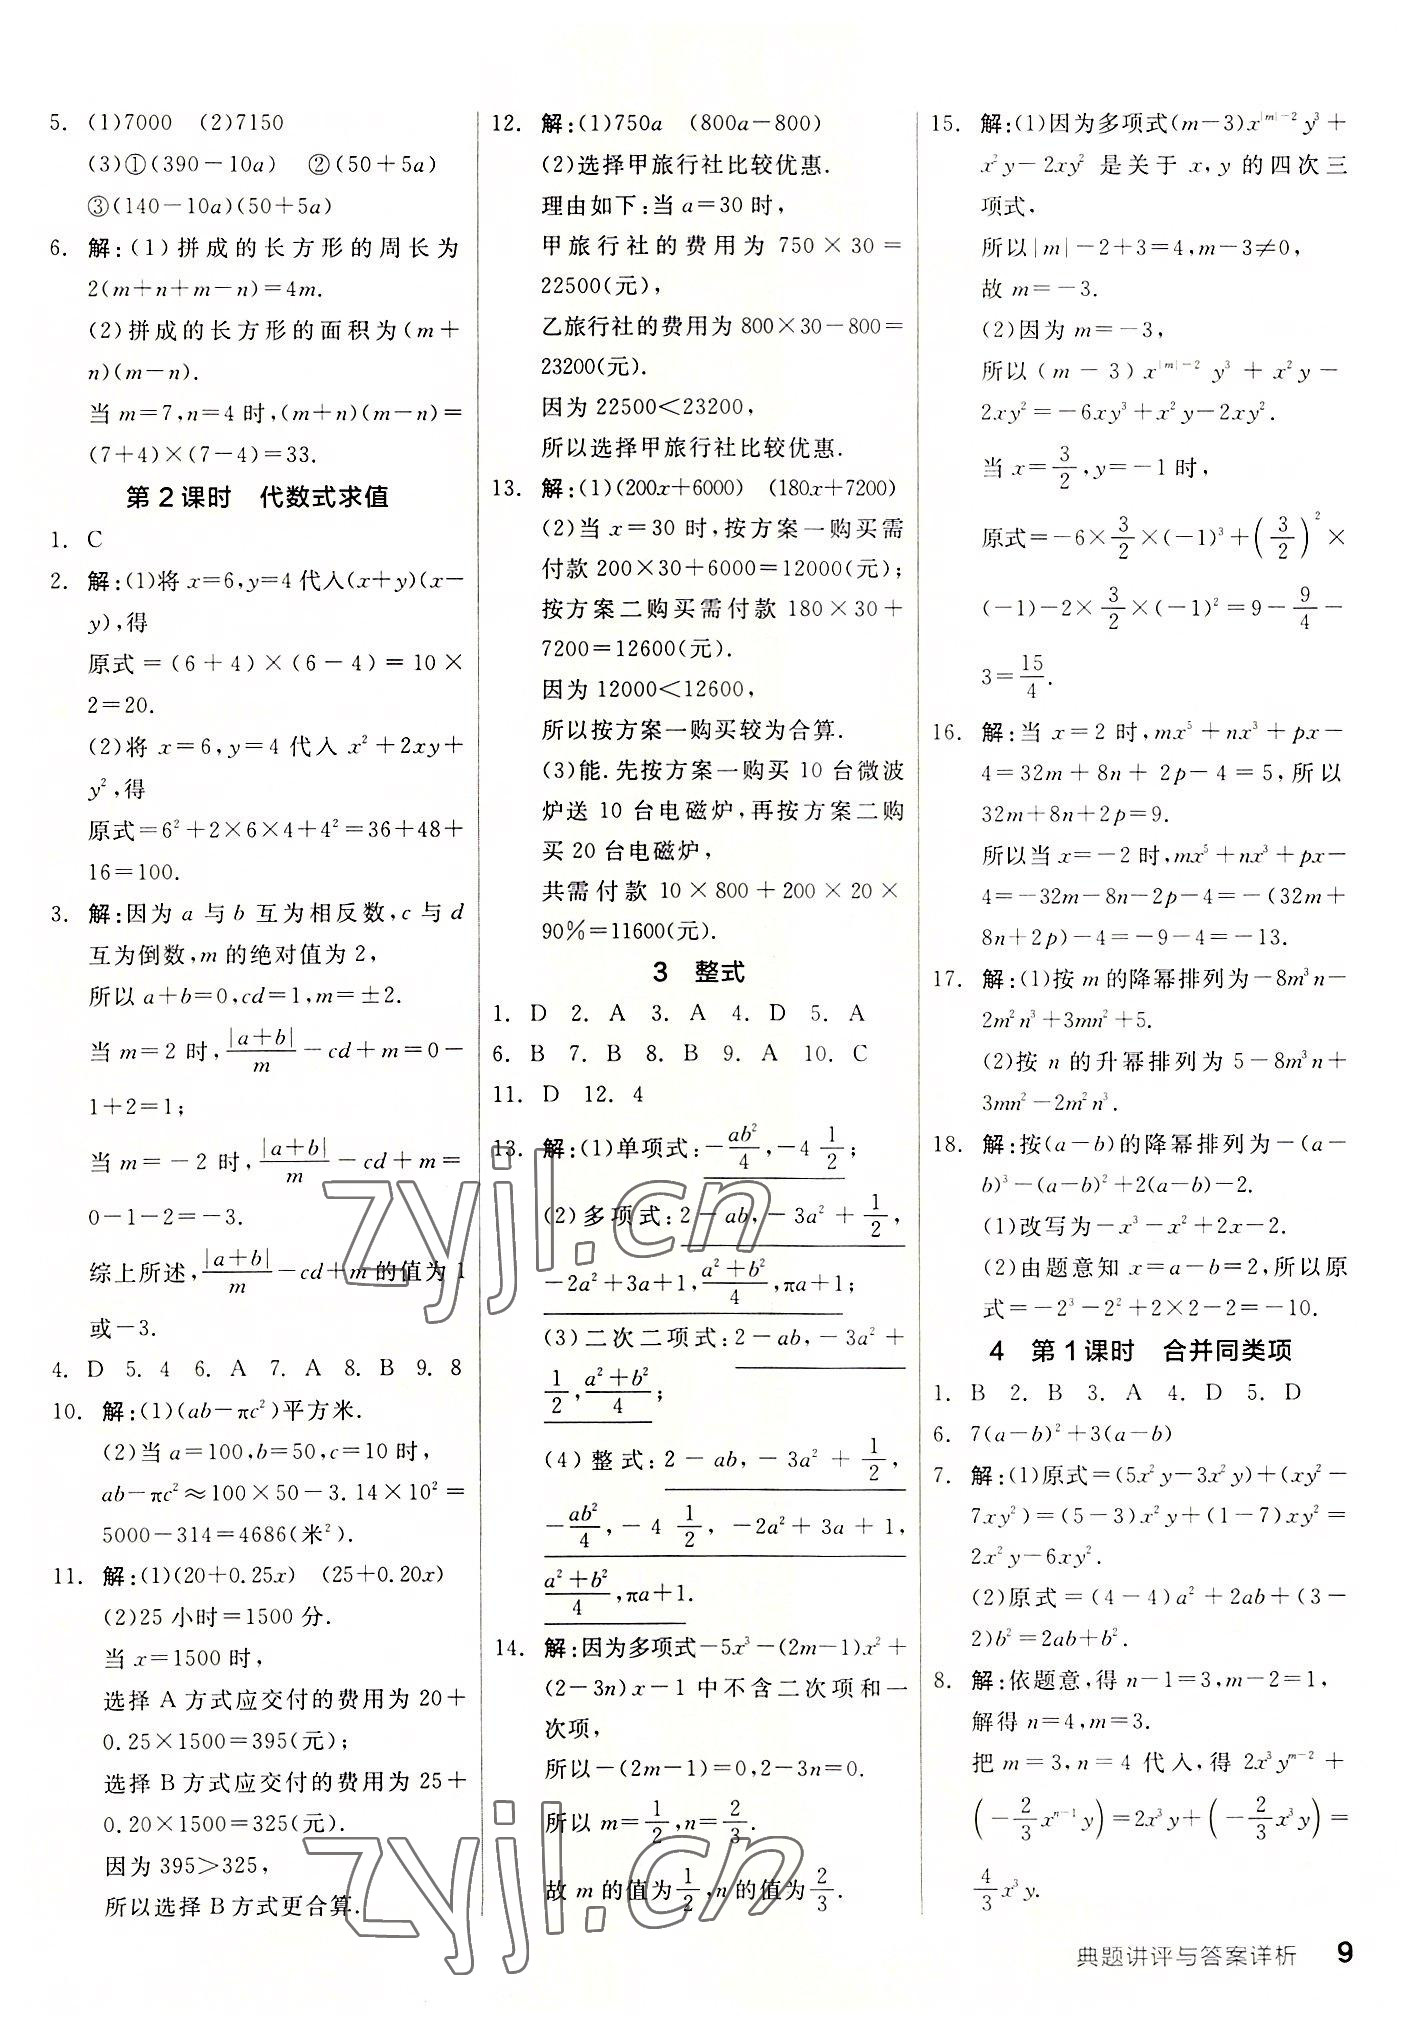 5. (1)7000 (2)7150
(3)①(390-10a) ②(50+5a)
③(140-10a)(50+5a)
6. 解:(1)拼成的长方形的周长为
2(m+n+m-n)=4m.
(2)拼成的长方形的面积为(m+
n)(m-n).
当m=7,n=4时,(m+n)(m-n)=
(7+4)×(7-4)=33.
第2课时 代数式求值
1. C
2. 解:(1)将x=6,y=4代入(x+y)(x-
y),得
原式=(6+4)×(6-4)=10×
2=20.
(2)将x=6,y=4代入x²+2xy+
y²,得
原式=6²+2×6×4+4²=36+48+
16=100.
3. 解:因为a与b互为相反数,c与d
互为倒数,m的绝对值为2,
所以a+b=0,cd=1,m=±2.
当m=2时,|a+b|/m-cd+m=0-
1+2=1;
当m=-2时,|a+b|/m-cd+m=
0-1-2=-3.
综上所述,|a+b|/m-cd+m的值为1
或-3.
4. D 5. 4 6. A 7. A 8. B 9. 8
10. 解:(1)(ab-πc²)平方米.
(2)当a=100,b=50,c=10时,
ab-πc²≈100×50-3.14×10²=
5000-314=4686(米²).
11. 解:(1)(20+0.25x) (25+0.20x)
(2)25小时=1500分.
当x=1500时,
选择A方式应交付的费用为20+
0.25×1500=395(元);
选择B方式应交付的费用为25+
0.20×1500=325(元).
因为395>325,
所以选择B方式更合算.
12. 解:(1)750a (800a-800)
(2)选择甲旅行社比较优惠.
理由如下:当a=30时,
甲旅行社的费用为750×30=
22500(元),
乙旅行社的费用为800×30-800=
23200(元).
因为22500<23200,
所以选择甲旅行社比较优惠.
13. 解:(1)(200x+6000) (180x+7200)
(2)当x=30时,按方案一购买需
付款200×30+6000=12000(元);
按方案二购买需付款180×30+
7200=12600(元).
因为12000<12600,
所以按方案一购买较为合算.
(3)能.先按方案一购买10台微波
炉送10台电磁炉,再按方案二购
买20台电磁炉,
共需付款10×800+200×20×
90%=11600(元).
3 整式
1. D 2. A 3. A 4. D 5. A
6. B 7. B 8. B 9. A 10. C
11. D 12. 4
13. 解:(1)单项式:-ab²/4,-4 1/2;
(2)多项式:2-ab,-3a²+1/2,
-2a²+3a+1,(a²+b²)/4,πa+1;
(3)二次二项式:2-ab,-3a²+
1/2,(a²+b²)/4;
(4)整式:2-ab,-3a²+1/2,
-ab²/4,-4 1/2,-2a²+3a+1,
(a²+b²)/4,πa+1.
14. 解:因为多项式-5x³-(2m-1)x²+
(2-3n)x-1中不含二次项和一
次项,
所以-(2m-1)=0,2-3n=0.
所以m=1/2,n=2/3.
故m的值为1/2,n的值为2/3.
15. 解:(1)因为多项式(m-3)x^{|m|-2}y³+
x²y-2xy²是关于x,y的四次三
项式,
所以|m|-2+3=4,m-3≠0,
故m=-3.
(2)因为m=-3,
所以(m-3)x^{|m|-2}y³+x²y-
2xy²=-6xy³+x²y-2xy².
当x=3/2,y=-1时,
原式=-6×3/2×(-1)³+(3/2)²×
(-1)-2×3/2×(-1)²=9-9/4-
3=15/4.
16. 解:当x=2时,mx⁵+nx³+px-
4=32m+8n+2p-4=5,所以
32m+8n+2p=9.
所以当x=-2时,mx⁵+nx³+px-
4=-32m-8n-2p-4=-(32m+
8n+2p)-4=-9-4=-13.
17. 解:(1)按m的降幂排列为-8m³n-
2m²n³+3mn²+5.
(2)按n的升幂排列为5-8m³n+
3mn²-2m²n³.
18. 解:按(a-b)的降幂排列为-(a-
b)³-(a-b)²+2(a-b)-2.
(1)改写为-x³-x²+2x-2.
(2)由题意知x=a-b=2,所以原
式=-2³-2²+2×2-2=-10.
4 第1课时 合并同类项
1. B 2. B 3. A 4. D 5. D
6. 7(a-b)²+3(a-b)
7. 解:(1)原式=(5x²y-3x²y)+(xy²-
7xy²)=(5-3)x²y+(1-7)xy²=
2x²y-6xy².
(2)原式=(4-4)a²+2ab+(3-
2)b²=2ab+b².
8. 解:依题意,得n-1=3,m-2=1,
解得n=4,m=3.
把m=3,n=4代入,得2x³y^{m-2}+
(-2/3x^{n-1}y)=2x³y+(-2/3x³y)=
4/3x³y.
典题讲评与答案详析 9
zyjl.cn
zyjl.cn